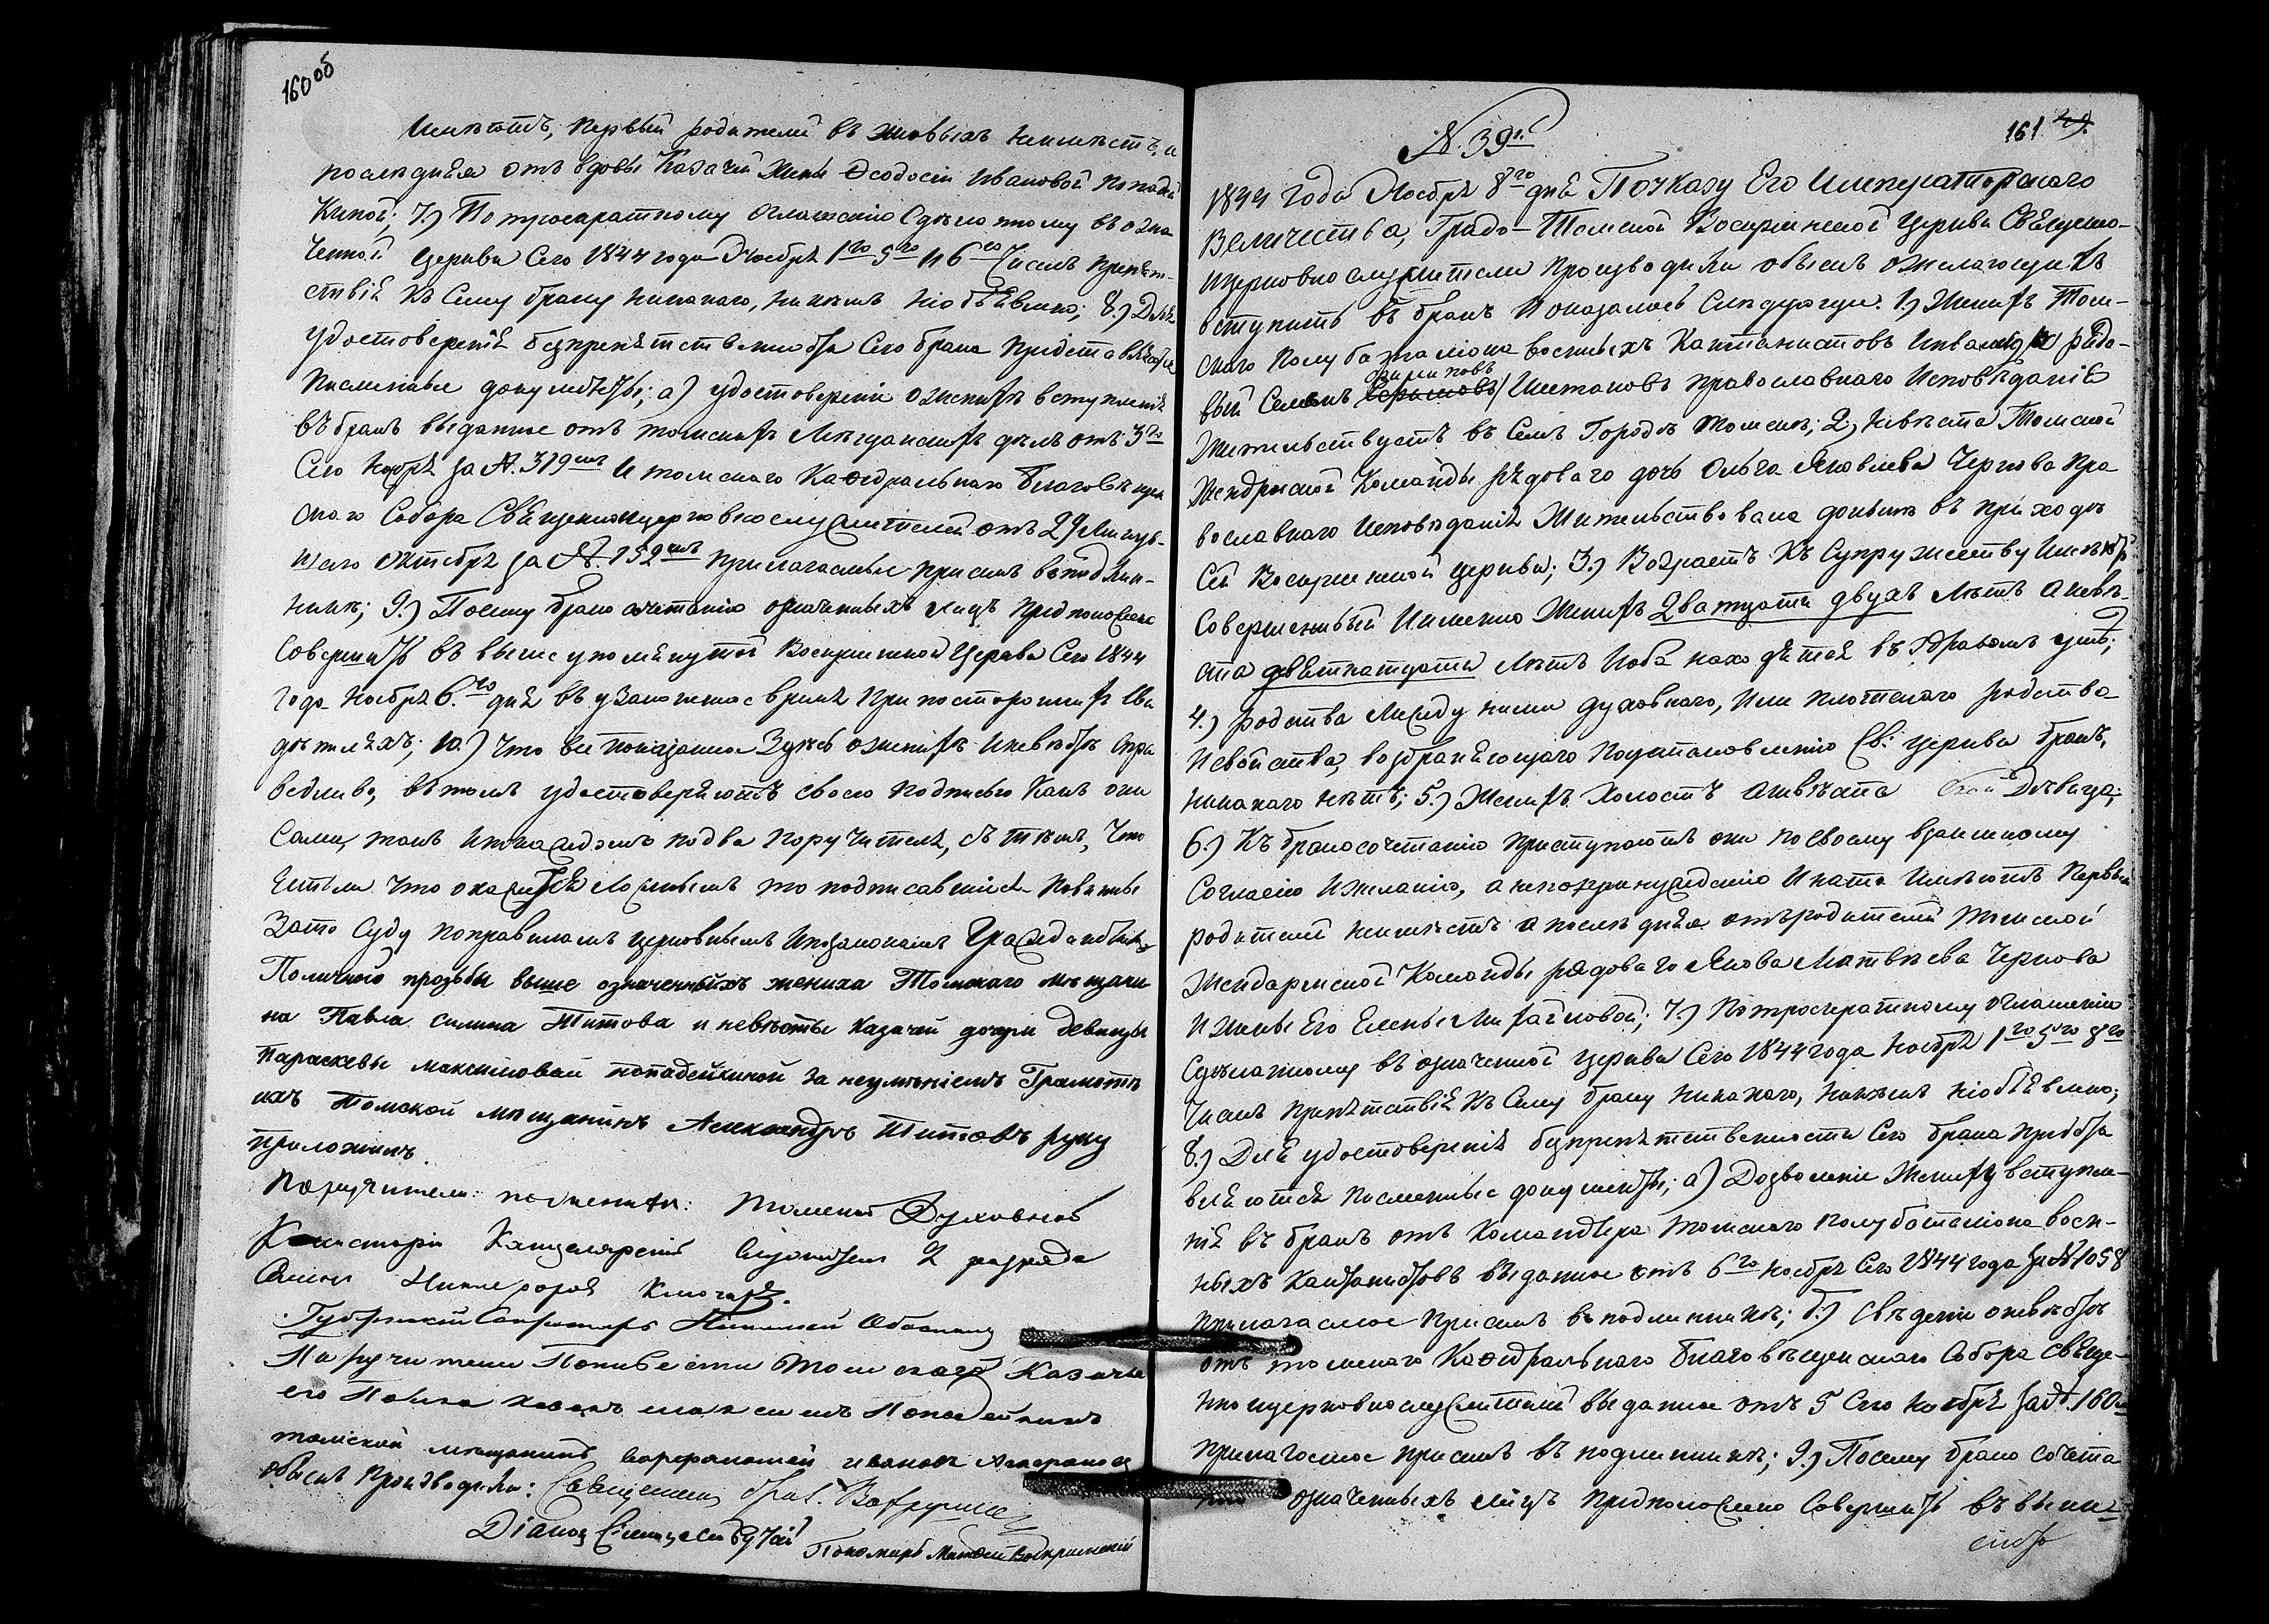 160 об
Имѣютъ, первый родителей въ живыхъ неимѣетъ, а
последняя отъ вдовы Казачей Жены Ѳеодосіи Ивановой Попадей
киной; 7.) По троекратному оглашенію сдѣланному въ озна
ченной церкви Сего 1844 года Ноября 1го 5го и 6го Числъ препят-
ствія къ Сему браку никакого, никемъ необъявлено; 8.) Для
удостоверенія безпрепятственности Сего брака представляются
письменные документы; а) удостовереніе о женихѣ вступленія
въ бракъ выданное отъ томскихъ Мѣщанскихъ дѣлъ отъ 3го
Сего Ноября за №. 379имъ и томскаго Каѳедральнаго Благовѣщен
скаго Собора Священноцерковнослужителей отъ 29 минув-
шаго октября за №. 152имъ прилагаемые при семъ въ подлин-
никѣ; 9.) Посему бракосочетаніе означенныхъ лицъ предположено
Совершить въ вышеупомянутой Воскресенской Церкви Сего 1844
года Ноября 6.го дня въ узаконенное время при постороннихъ Сви
детеляхъ; 10.) Что все показанное Здѣсь о женихѣ и невѣстѣ спра
ведливо, въ томъ удостоверяютъ своею подписью какъ они
Сами, такъ и по каждомъ по два поручителя, съ тѣмъ, что
Естьли что окажется ложнымъ то подписавшіеся повинны
Зато Суду поправиламъ церковнымъ и по законамъ Гражданскимъ
По личной прозьбы выше означенныхъ жениха Томскаго мѣщани
на Павла Силина Титова и невѣсты казачей дочери девицы
Параскевы Максимовой попадейкиной за неумѣніемъ Грамоте
ихъ Томской мѣщанинъ Александръ Титовъ руку
приложилъ.
Поручители: по женихѣ: Томской Духовной
Консисторіи Канцелярскій Служитель 2 разряда
Никифоровъ Ключаревъ.
Губернскій Секретарь Николай
Паручители Поневести Томскаго Казачь
его Полка казакъ максимъ Попадейкинъ
томской мещанинъ варфоломей ивановъ
обыскъ производили: Священникъ Вавруши
Діаконъ
Пономарь Матвей Воскресенскій
161. 29.
№. 39й
1844 года Ноября 8го дня По указу Его Императорскаго
Величества, Градо-Томской Воскресенской церкви Священно-
ицерковнослужители производили обыскъ о желающихъ
вступить въ бракъ и оказалось Следующее. 1.) Женихъ Том-
скаго Полубаталіона военныхъ Кантонистовъ Инвалидъ рядо-
вый Семенъ Шестаковъ православнаго Исповѣданія
Жительствуетъ въ Семъ Городѣ Томскѣ; 2.) Невѣста Томской
Жендрмской Команды рядоваго дочь Ольга Яковлева Чернова Пра
вославнаго Исповѣданія Жительствовала доныне въ приходѣ
Сей Воскресенской церкви; 3.) Возрастъ къ Супружеству Имѣютъ
Совершенный Именно Женихъ дватцати двухъ Лѣтъ а невѣ-
ста девятнатцати Лѣтъ и оба находятся въ здравомъ умѣ;
4.) родства между ними духовнаго, или плотскаго родства
и свойства, возбраняющаго по установленію Св: церкви бракъ,
никакого нѣтъ; 5.) Женихъ Холостъ а невѣста Девица;
6.) Къ бракосочетанію приступаютъ они по своему взаимному
Согласію и желанію, а не по принужденію и на то Имѣютъ Первый
родителей неимѣетъ а последняя отъ родителей томской
Жендармской Команды рядоваго Якова Матвѣева Чернова
и жены Его Елены Михайловой; 7.) По троекратному оглашенію
Сдѣланному въ означенной церкви Сего 1844 года Ноября 1го 5го 8го
Числъ препятствія къ Сему браку никакого, никѣмъ необъявлено;
8.) Для удостоверенія безпрепятственности Сего брака предста
вляются письменные документы; а) Дозволеніе Жениху вступле-
нія въ бракъ отъ Командира томскаго полубаталіона воен-
ныхъ Кантонистовъ выданное отъ 6го ноября Сего 1844 года за №1058
прилагаемое при семъ въ подлинникѣ; б.) Сведеніе о невѣстѣ
отъ томскаго Каѳедральнаго Благовѣщенскаго Собора Свяще-
нноцерковнослужителей выданное отъ 5 Сего Ноября за №. 160
прилагаемое при семъ въ подлинникѣ; 9.) Посему бракосочета
ніе означенныхъ лицъ предположено Совершить въ выше-